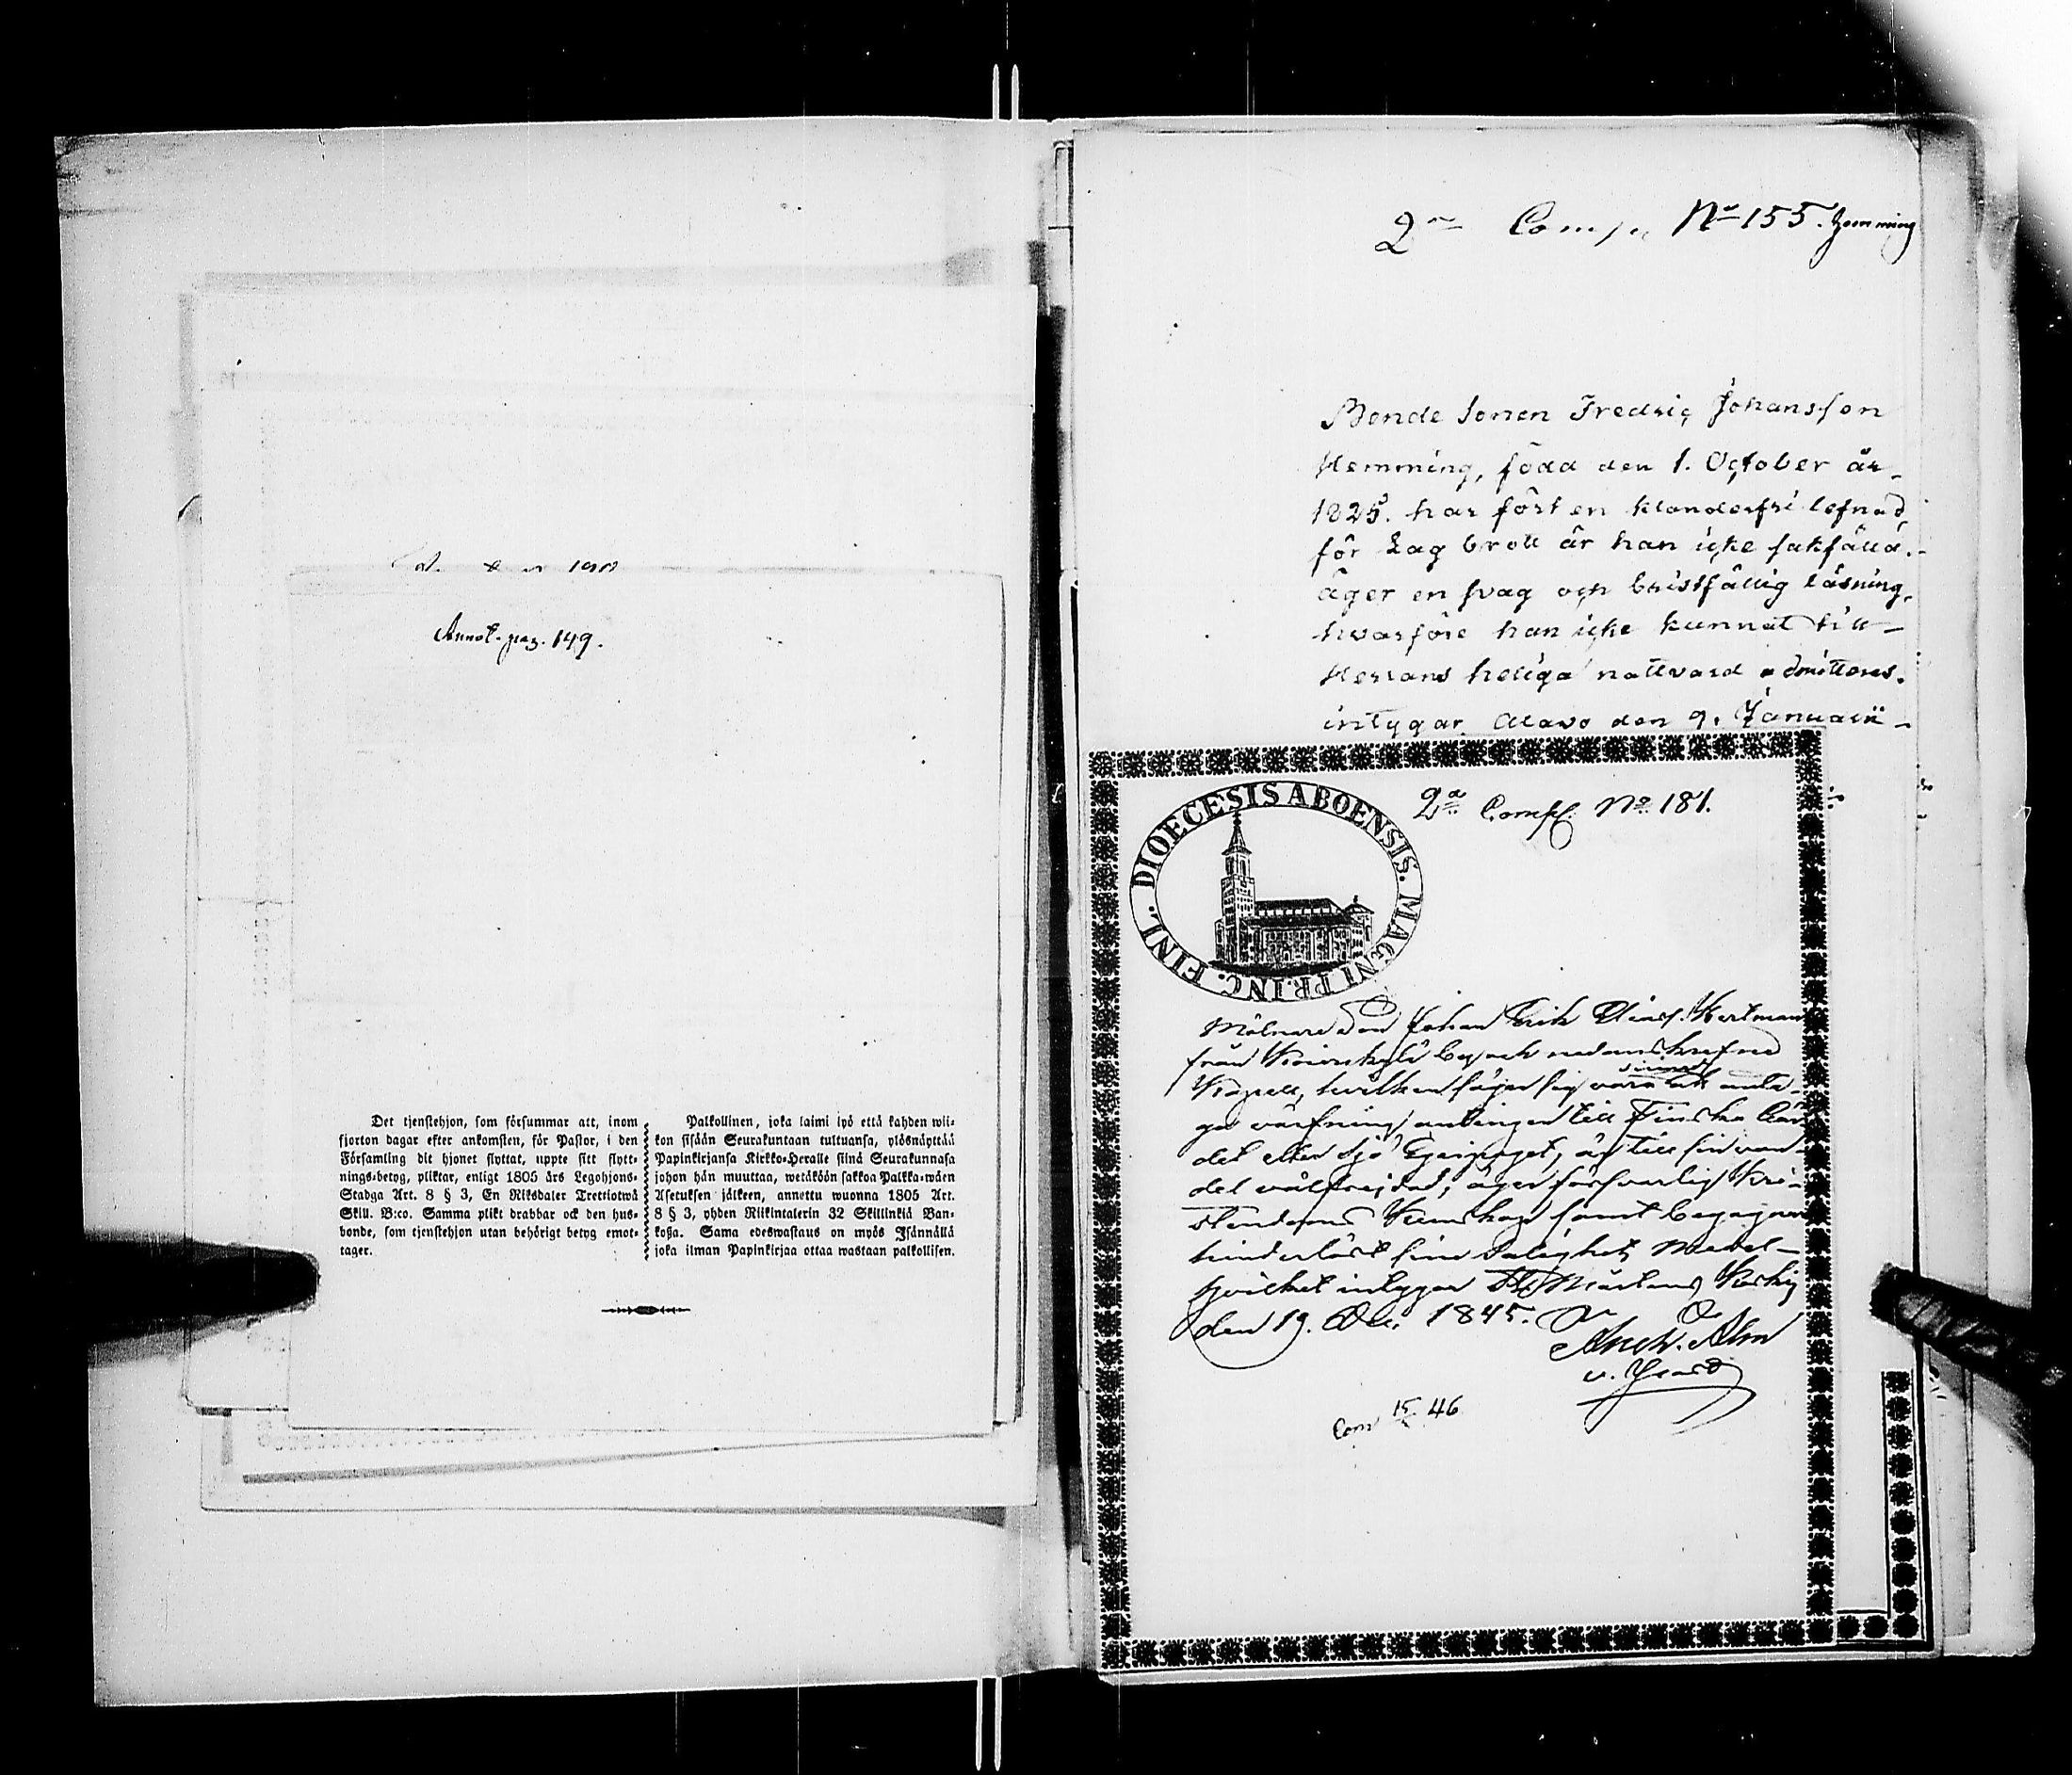 Annot. pag. 149.
Det tjenstehjon, som försummar att, inom
fjorton dagar efter ankomsten, för Pastor, i den
Församling dit hjonet flyttat, uppte sitt flytt-
nings-betyg, pliktar, enligt 1805 års Legohjons-
Stadga Art. 8 § 3, En Riksdaler Trettiotwå
Skill. B:co. Samma plikt drabbar ock den hus-
bonde, som tjenstehjon utan behörigt betyg emot-
tager.
Palkollinen, joka laimi lyö että kahden wii-
kon sisään Seurakuntaan tultuansa, ylösnäyttää
Papinkirjansa Kirkko-Heralle siinä Seurakunnasa
johon hän muuttaa, wetäköön sakkoa Palkka-wäen
Asetuksen jälkeen, annettu wuonna 1805 Art.
8 § 3, yhden Riikintalerin 32 Skillinkiä Ban-
koßa. Sama edeswastaus on myös Isännällä
joka ilman Papinkirjaa ottaa wastaan palkollisen.
2ra Comp. No 155. Hemming
Bonde Sonen Fredric Johansson
Hemming, född den 1. October år
1825. har fört en klanderfri lefnad,
för Lag brott är han icke sakfälld.
äger en svag och bristfällig läsning,
hvarföre han icke kunnat till
Herrans heliga nattvard admitteras.
intygar Alavo den 9. Januarii
DIOECESIS ABOENSIS. MAGNI PR.INC. FINL.
2ra Comp. No 181.
Mölnare Son Johan Erik Wertman
från by och nedanskrefne
Kapell, hvilken säger sig vara sinnad att anta-
ga värfning antingen till Finska Gar
det eller Sjö Equipaget, är till sin van-
del välfrejdad; äger försvarlig Kri-
stendoms Kunskap samt begagnar
hinderlöst sine Salighets Medel
hvilket intygar St Mårtens
den 19. Dec. 1845.
Andr. Alm
v.
Com 15/ 46